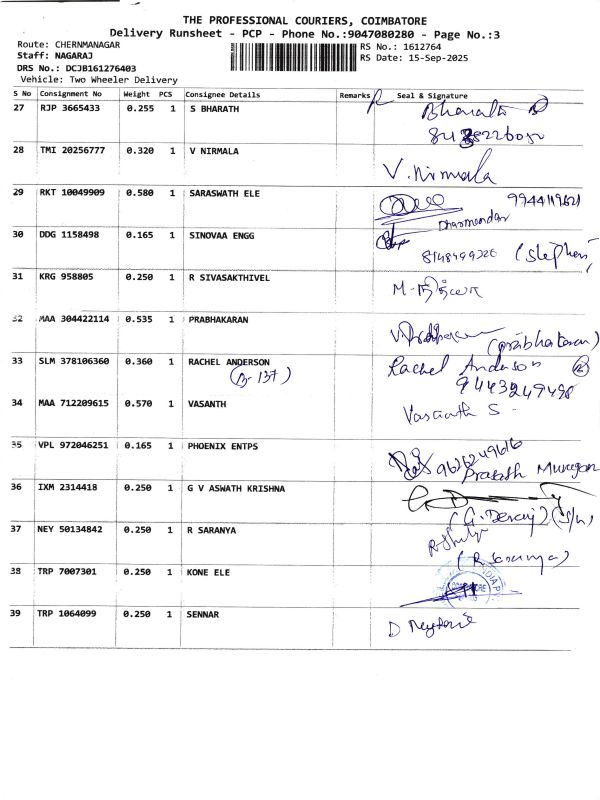 THE PROFESSIONAL COURIERS, COIMBATORE
Delivery Runsheet - PCP - Phone No.:9047080280 - Page No.:3
Route: CHERNMANAGAR RS No.: 1612764
Staff: NAGARAJ RS Date: 15-Sep-2025
DRS No.: DCJB161276403
Vehicle: Two Wheeler Delivery
S No Consignment No Weight PCS Consignee Details Remarks Seal & Signature
27 RJP 3665433 0.255 1 S BHARATH Bharath
28 TMI 20256777 0.320 1 V NIRMALA V. Nirmala
29 RKT 10049909 0.580 1 SARASWATH ELE 9944119621
Dharmendar
30 DDG 1158498 0.165 1 SINOVAA ENGG
8148499226 (Stephen)
31 KRG 958805 0.250 1 R SIVASAKTHIVEL
32 MAA 304422114 0.535 1 PRABHAKARAN (prabhakaran)
33 SLM 378106360 0.360 1 RACHEL ANDERSON Rachel Anderson
(B-137) 9443249498
34 MAA 712209615 0.570 1 VASANTH Vasanth S
35 VPL 972046251 0.165 1 PHOENIX ENTPS 9626249616
Prakash Murugan
36 IXM 2314418 0.250 1 G V ASWATH KRISHNA
(G. Devaraj) (S/n)
37 NEY 50134842 0.250 1 R SARANYA
(R. Saranya)
38 TRP 7007301 0.250 1 KONE ELE
39 TRP 1064099 0.250 1 SENNAR